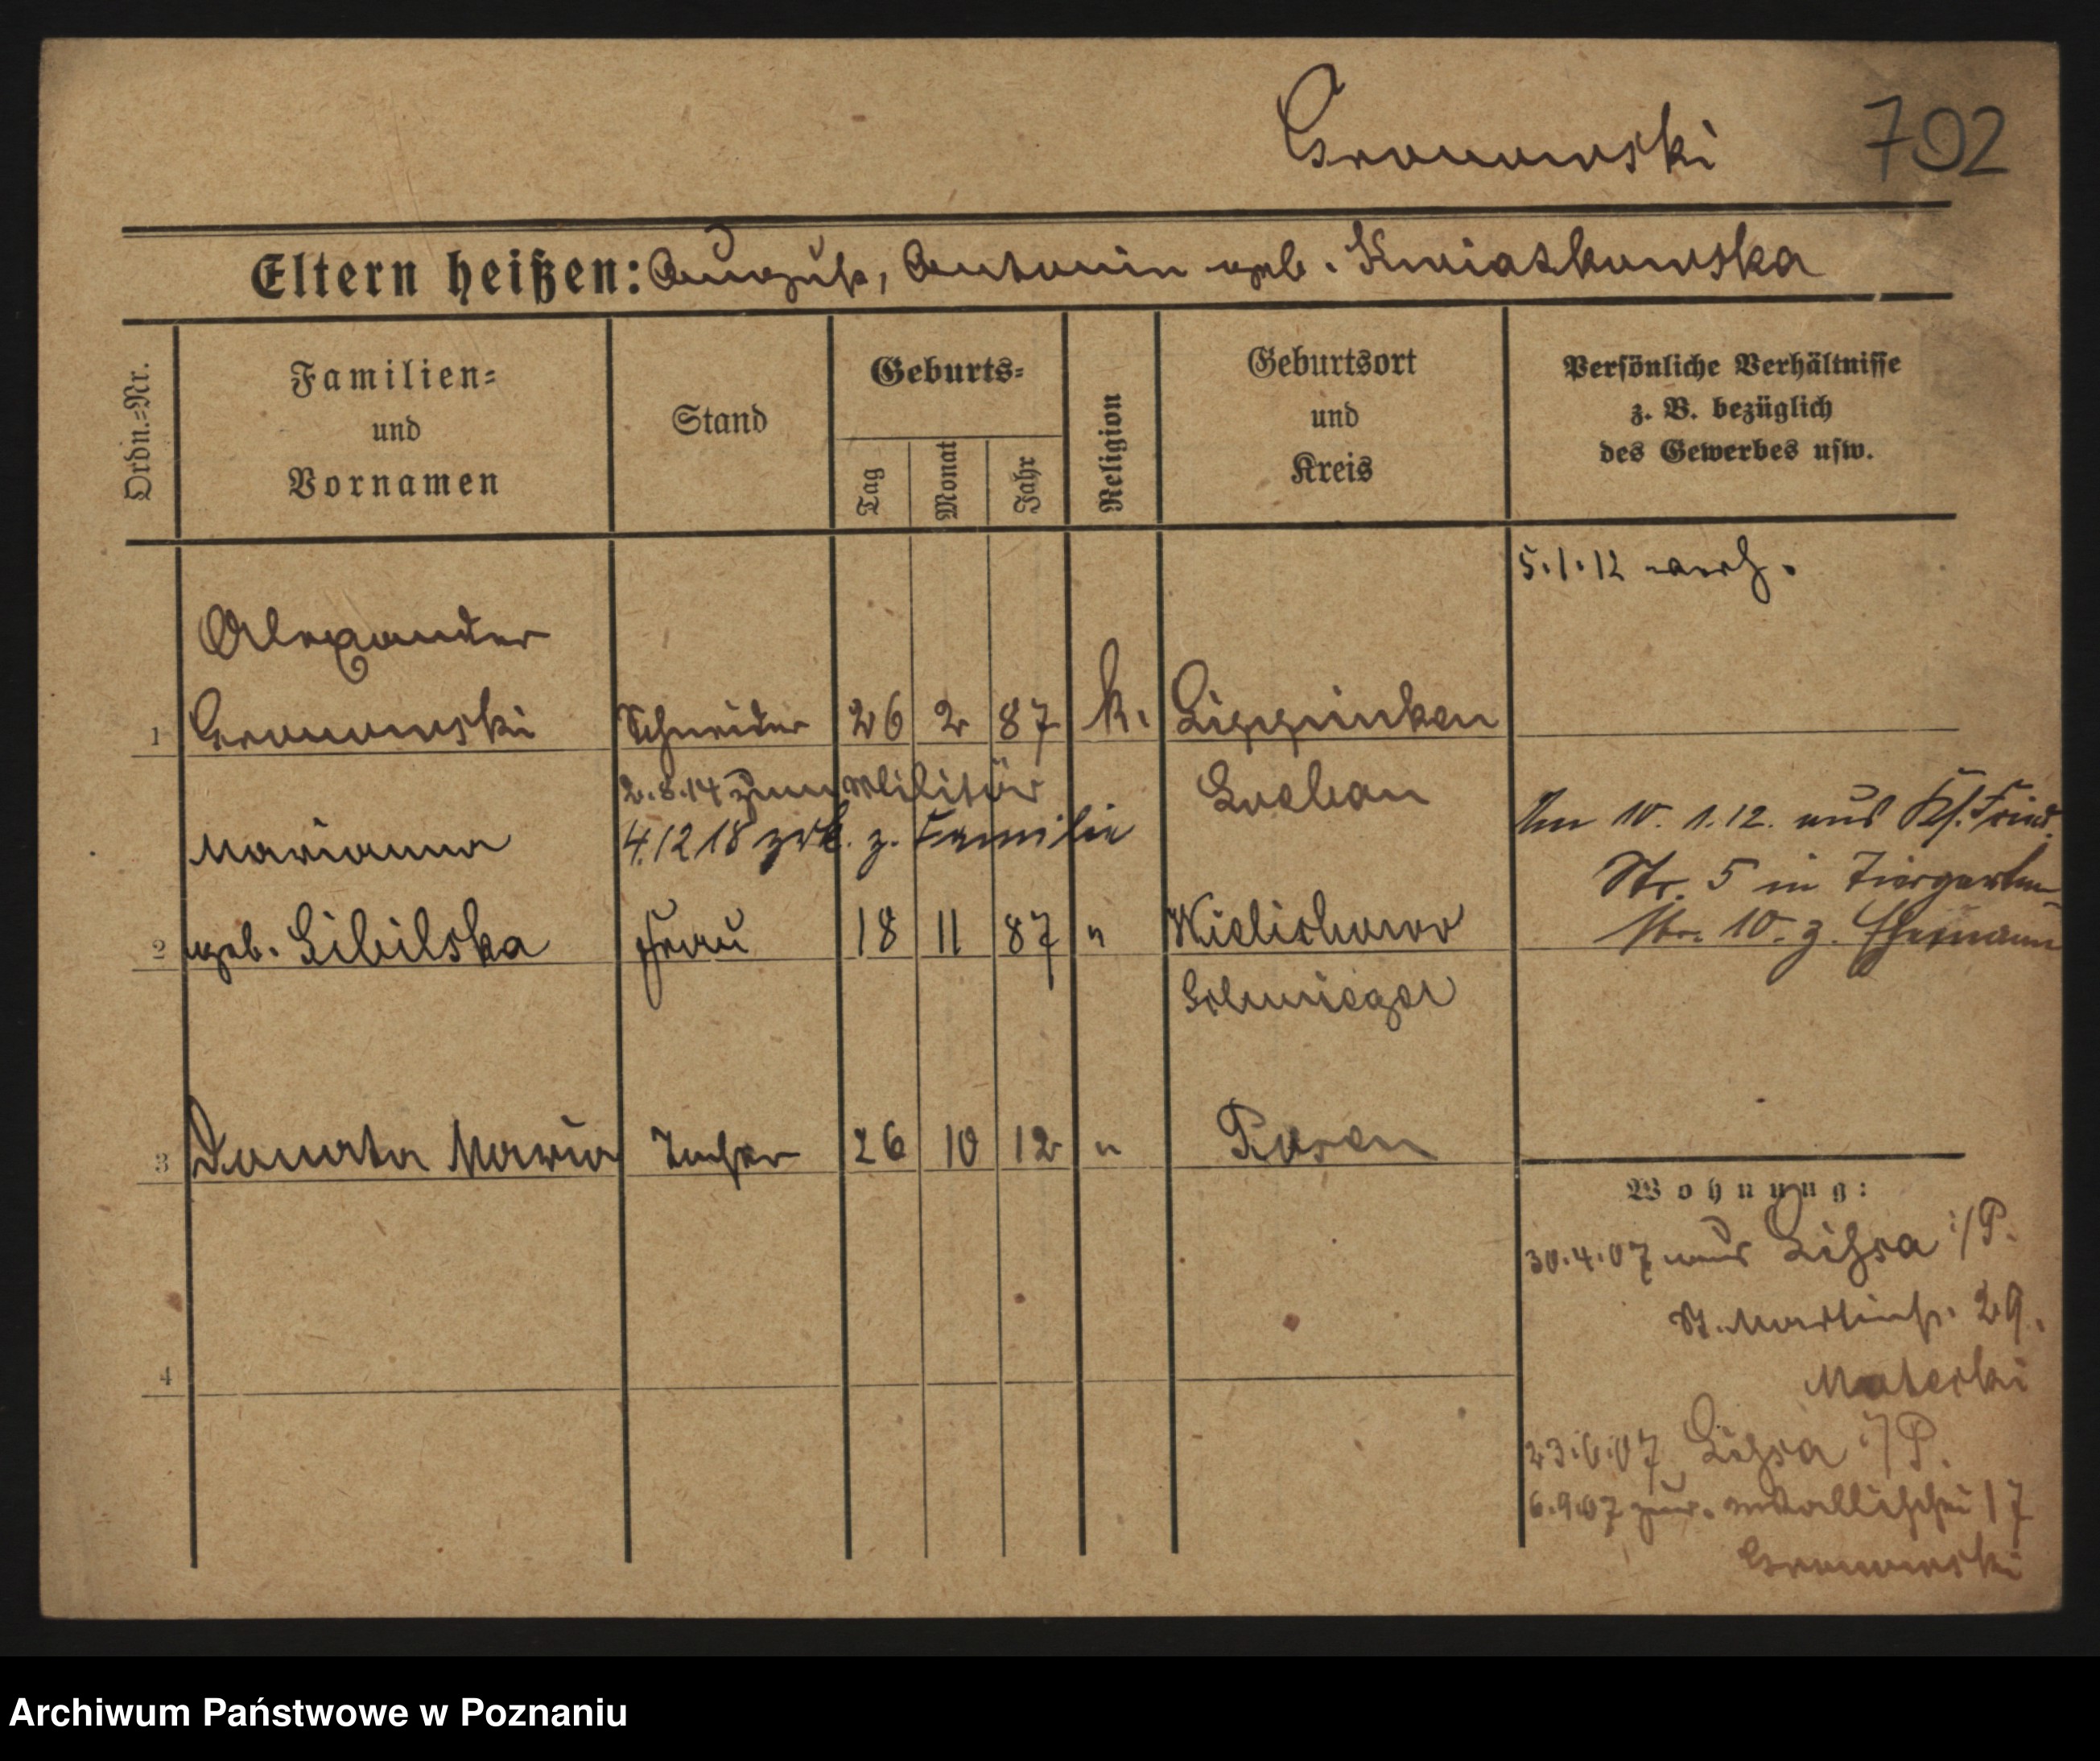 Gronowski 702
Eltern heißen: August, Antonin geb. Kwiatkowska
Ordn.=Nr.
Familien=
und
Vornamen
Stand
Geburts=
Tag
Monat
Jahr
Religion
Geburtsort
und
Kreis
Persönliche Verhältnisse
z. B. bezüglich
des Gewerbes usw.
5.1.12 verh.
Alexander
1 Gronowski Schneider 26 2 87 k. Lippinken
2.8.14 zum Militär Loebau
4.12 18 zrk. z. Familie
Am 10. 1.12. aus Kl. Fried.
Str. 5 in Tiergarten
str. 10. z. Ehemann
Marianna
2 geb. Libilska Frau 18 11 87 " Wielichowo
Schmiegel
3 Donata Maria Tochter 26 10 12 " Posen
4
Wohnung:
30.4.07 aus Lissa i/P.
St. Martinstr. 29.
Materski
23.6.07 Lissa i/P.
6.9.07 zur. 17
Gronowski
Archiwum Państwowe w Poznaniu